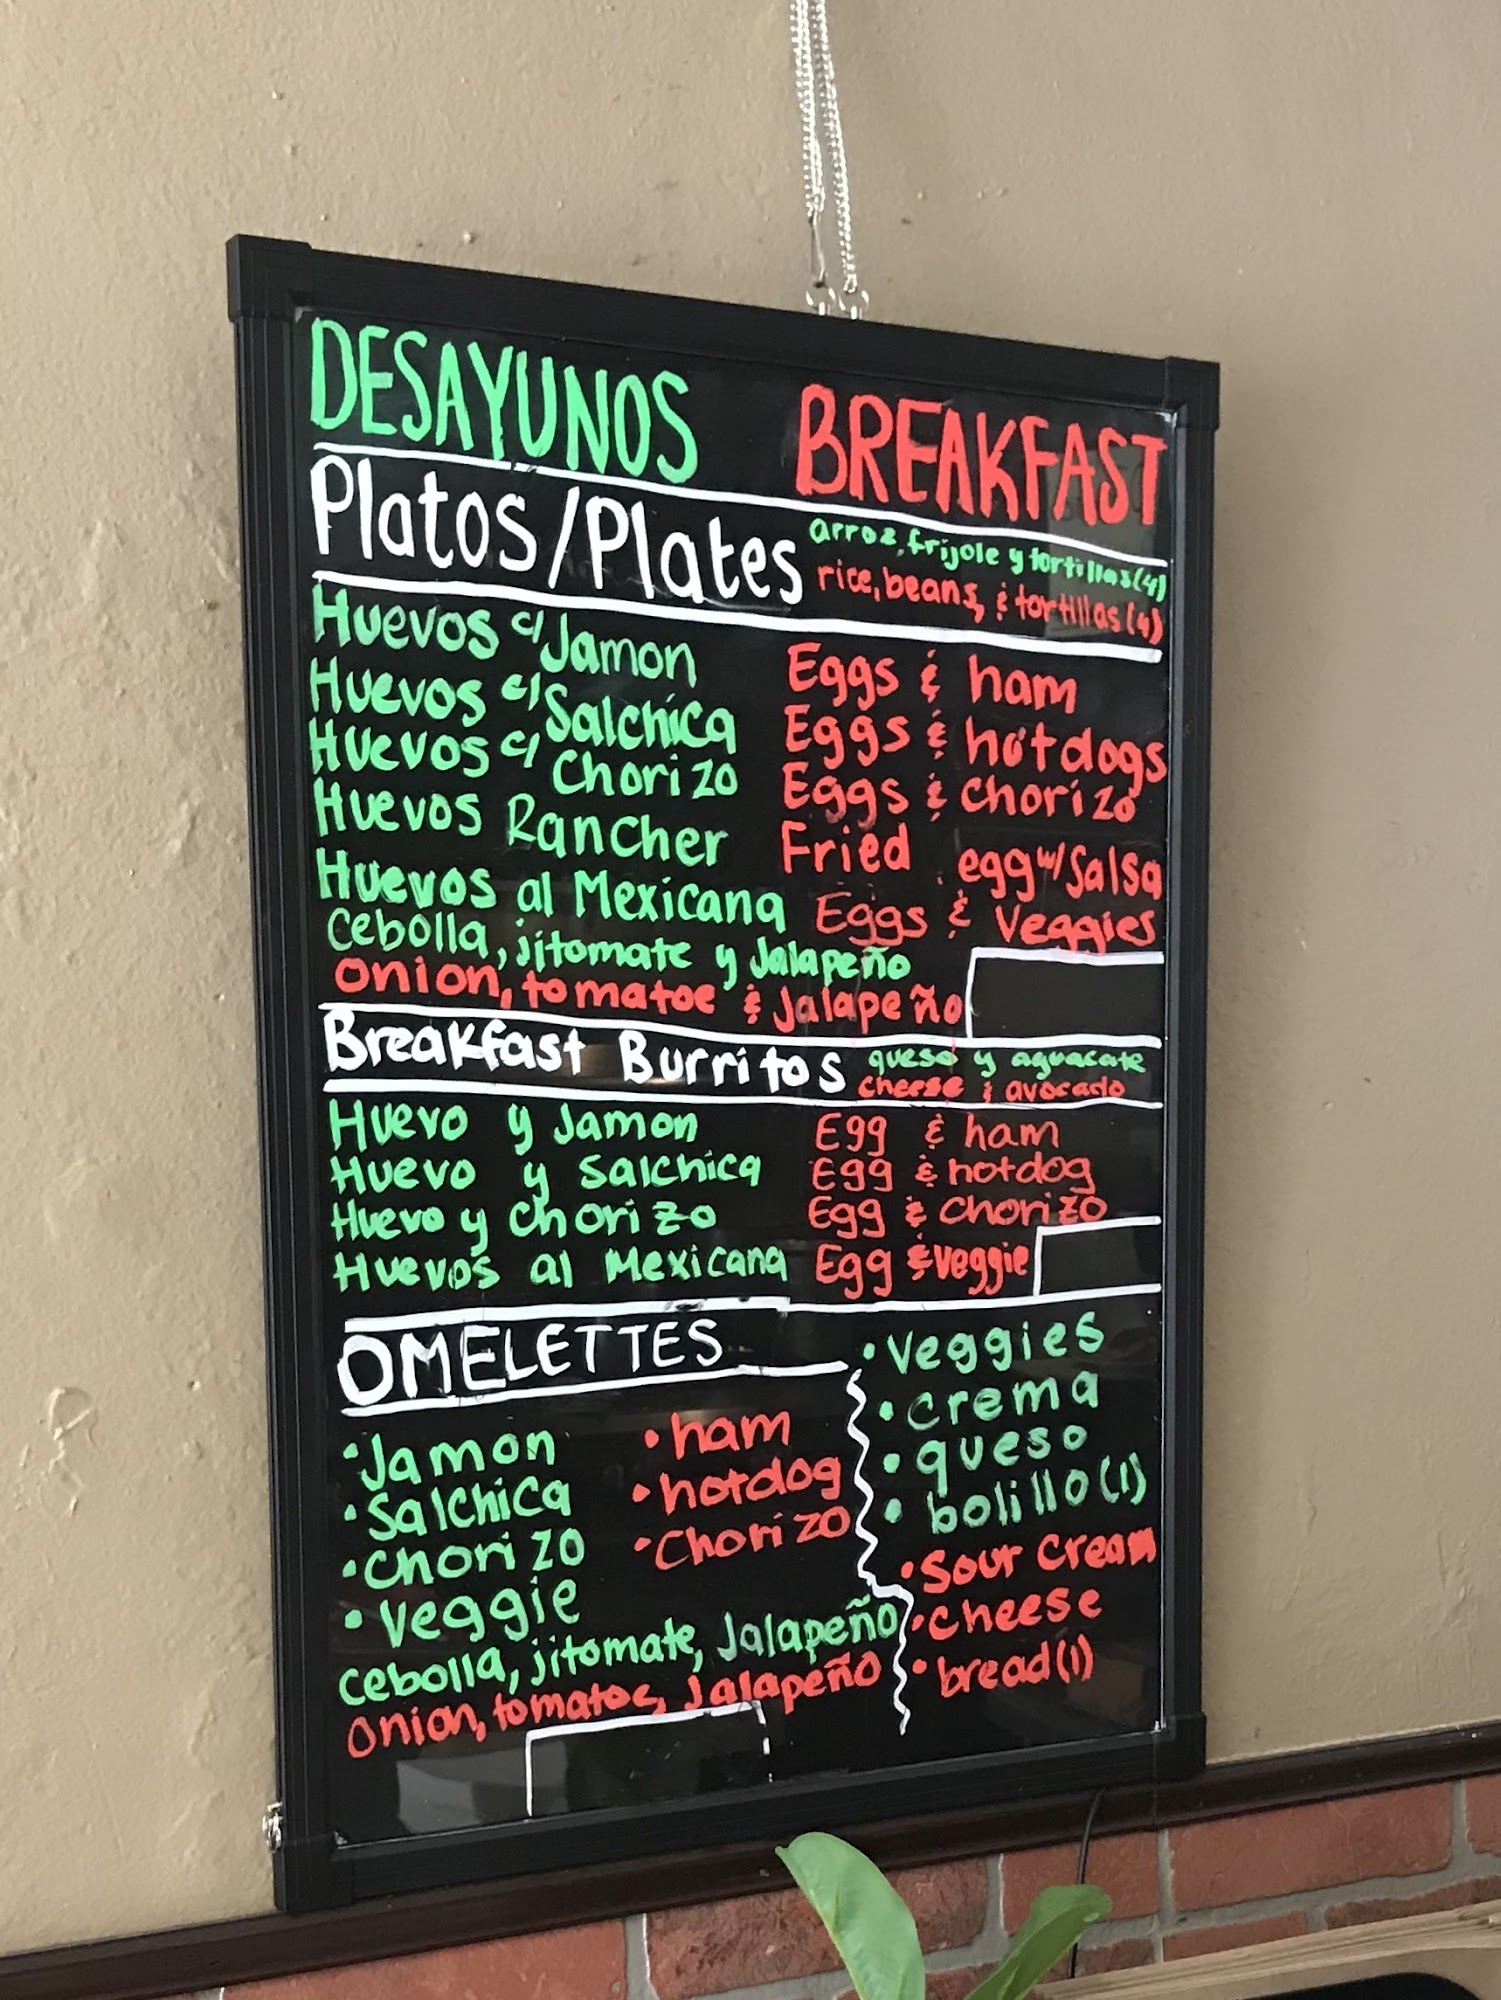 DESAYUNOS BREAKFAST
Platos/Plates
arroz, frijole y tortillas(4)
rice, beans, & tortillas(4)
Huevos c/ Jamon Eggs & ham
Huevos c/ Salchica Eggs & hotdogs
Huevos c/ Chorizo Eggs & chorizo
Huevos Rancher Fried egg w/ Salsa
Huevos al Mexicana Eggs & Veggies
cebolla, jitomate y Jalapeño
onion, tomatoe & Jalapeño
Breakfast Burritos
queso y aguacate
cheese & avocado
Huevo y Jamon Egg & ham
Huevo y Salchica Egg & hotdog
Huevo y Chorizo Egg & Chorizo
Huevos al Mexicana Egg & veggie
OMELETTES
•Jamon •ham
•Salchica •hotdog
•Chorizo •Chorizo
•Veggie
cebolla, jitomate, Jalapeño
Onion, tomatoe, Jalapeño
•Veggies
•crema
•queso
•bolillo(1)
•Sour Cream
•cheese
•bread(1)